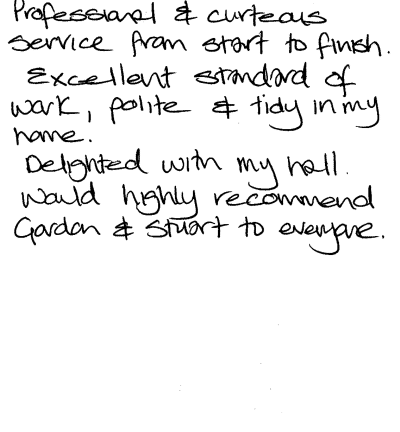 Professional & curteous
service from start to finish.
Excellent standard of
work, polite & tidy in my
home.
Delighted with my hall.
Would highly recommend
Gordon & Stuart to everyone.